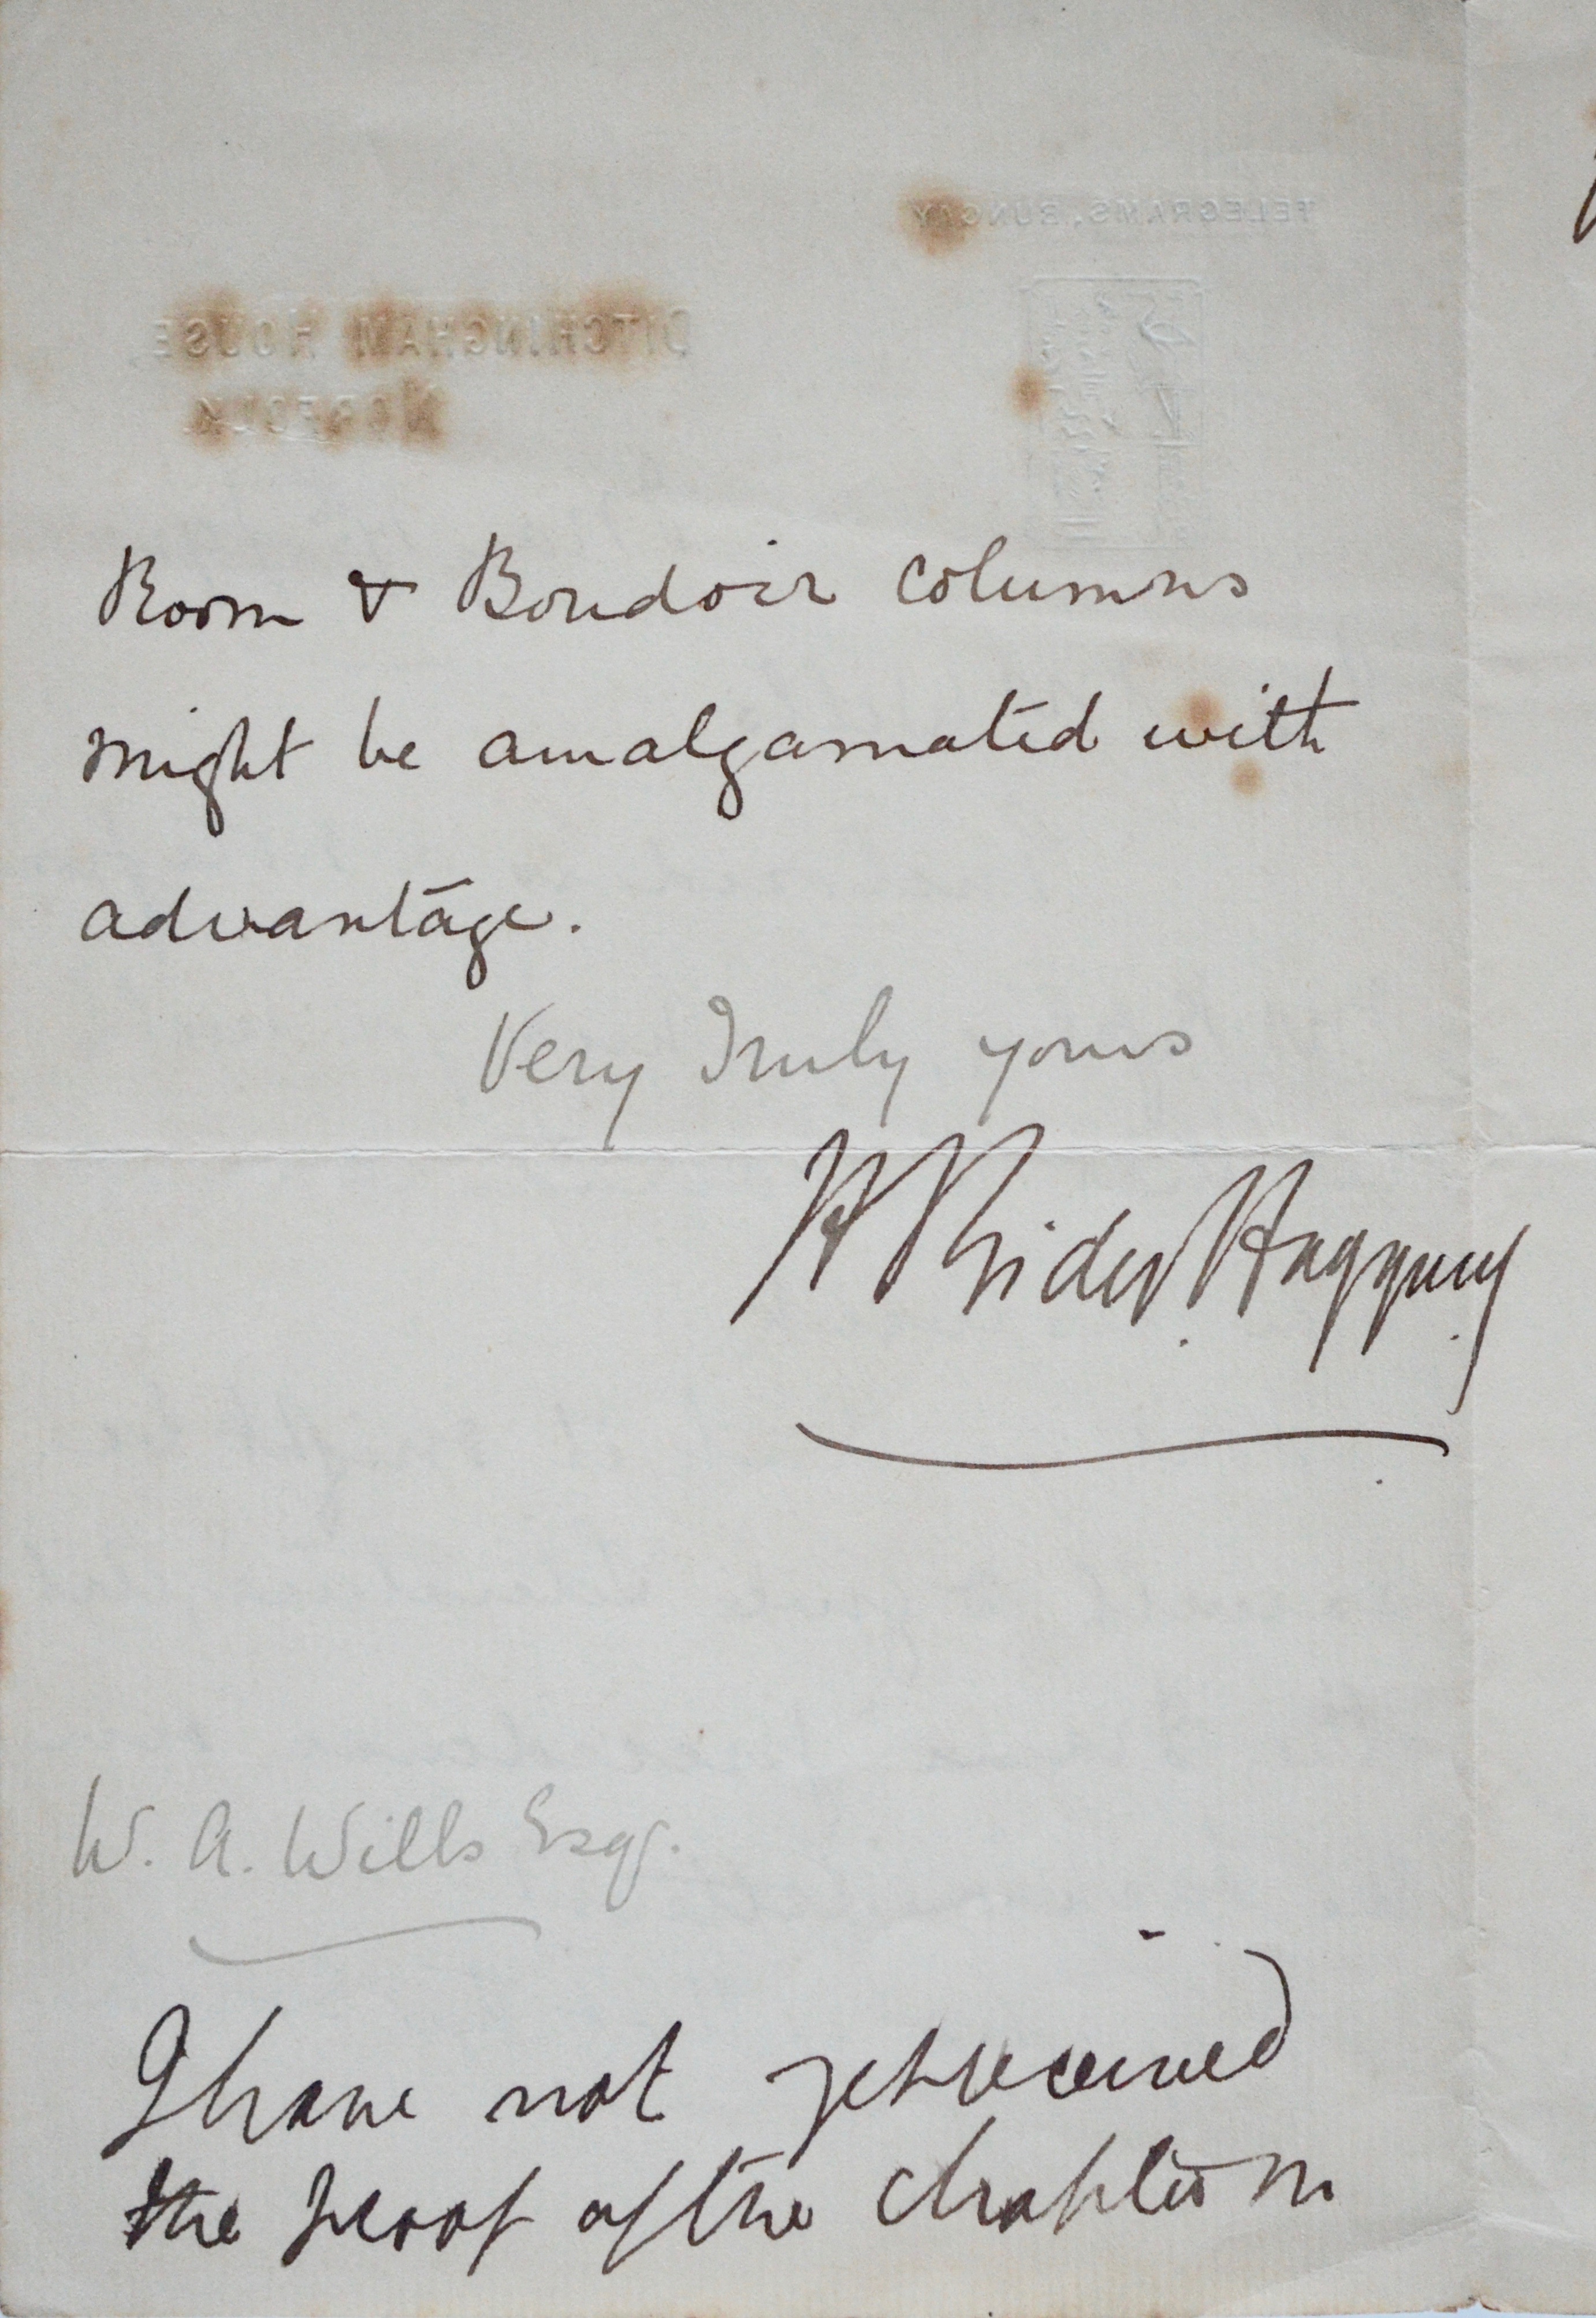 TELEGRAMS, BUNGAY
DITCHINGHAM HOUSE
NORFOLK
Room & Boudoir columns
might be amalgamated with
advantage.
Very Truly yours
H Rider Haggard
W. A. Wills Esqr.
I have not yet received
the proof of the chapter on